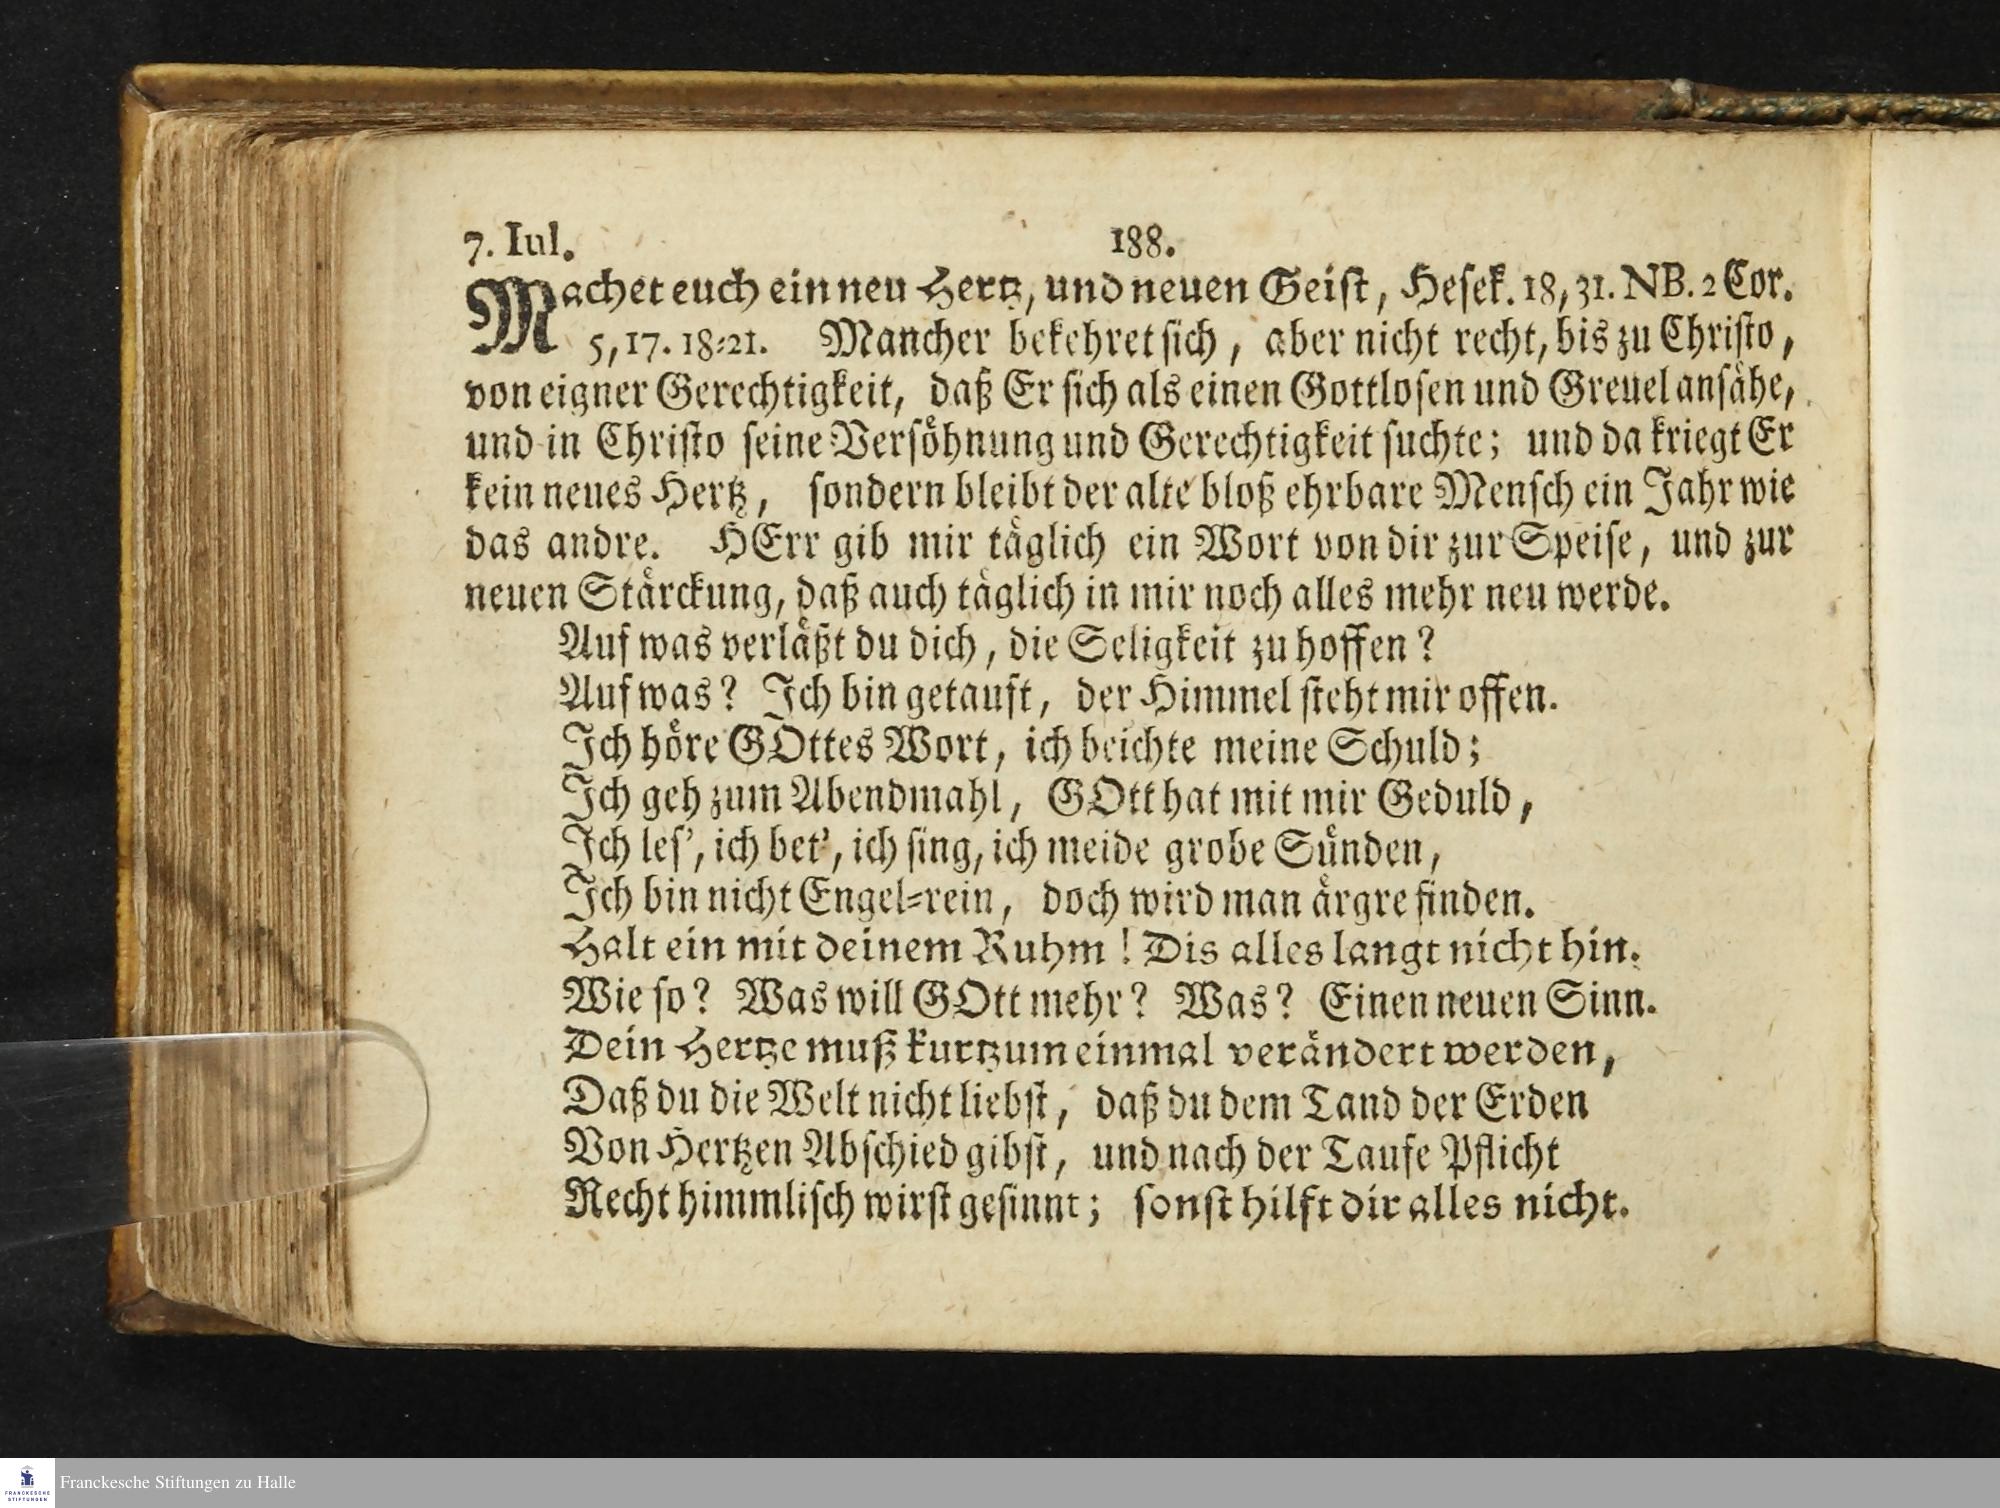 7. Iul. 188.
Machet euch ein neu Hertz, und neuen Geist, Hesek. 18, 31. NB. 2 Cor.
5, 17. 18-21. Mancher bekehret sich, aber nicht recht, bis zu Christo,
von eigner Gerechtigkeit, daß Er sich als einen Gottlosen und Greuel ansähe,
und in Christo seine Versöhnung und Gerechtigkeit suchte; und da kriegt Er
kein neues Hertz, sondern bleibt der alte bloß ehrbare Mensch ein Jahr wie
das andre. HErr gib mir täglich ein Wort von dir zur Speise, und zur
neuen Stärckung, daß auch täglich in mir noch alles mehr neu werde.
Auf was verläßt du dich, die Seligkeit zu hoffen?
Auf was? Ich bin getauft, der Himmel steht mir offen.
Ich höre GOttes Wort, ich beichte meine Schuld;
Ich geh zum Abendmahl, GOtt hat mit mir Geduld,
Ich les', ich bet', ich sing, ich meide grobe Sünden,
Ich bin nicht Engel-rein, doch wird man ärgre finden.
Halt ein mit deinem Ruhm! Dis alles langt nicht hin.
Wie so? Was will GOtt mehr? Was? Einen neuen Sinn.
Dein Hertze muß kurtzum einmal verändert werden,
Daß du die Welt nicht liebst, daß du dem Tand der Erden
Von Hertzen Abschied gibst, und nach der Taufe Pflicht
Recht himmlisch wirst gesinnt; sonst hilft dir alles nicht.
FRANCKESCHE
STIFTUNGEN
Franckesche Stiftungen zu Halle